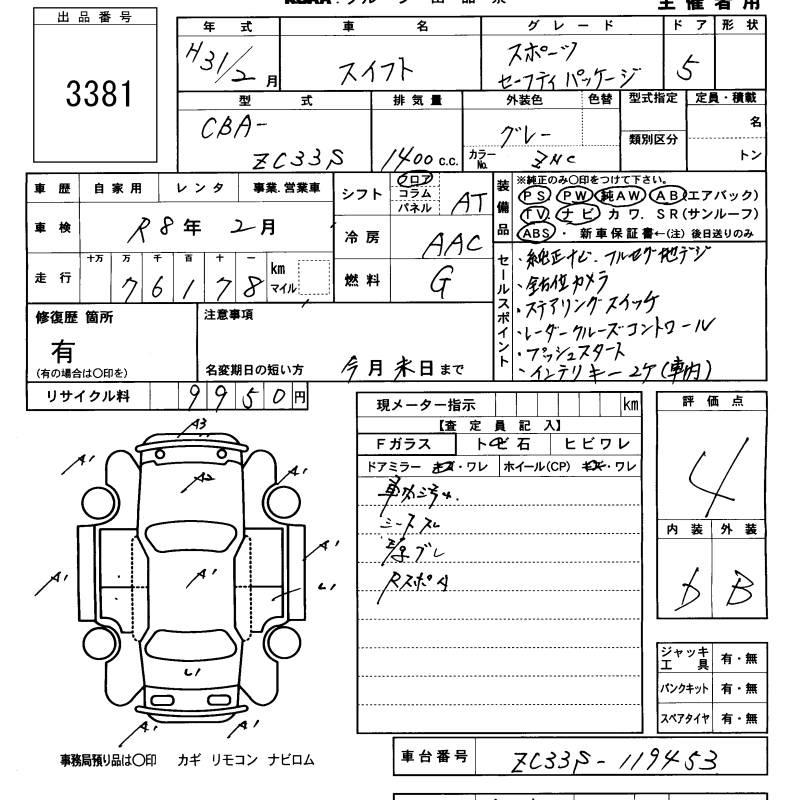 出品番号
3381
主催者用
年式 車名 グレード ドア 形状
H31/2月 スイフト スポーツ セーフティパッケージ 5
型式 排気量 外装色 色替 型式指定 定員・積載
CBA-ZC33S 1400 c.c. グレー カラーNo. ZNC 類別区分 名 トン
車歴 自家用 レンタ 事業.営業車
車検 R8年 2月
走行 十万 万 千 百 十 一 km マイル
76178
シフト フロア コラム パネル AT
冷房 AAC
燃料 G
装備品
※純正のみ〇印をつけて下さい。
PS PW 純AW AB(エアバック)
TV. ナビ カワ. SR(サンルーフ)
ABS・新車保証書←(注)後日送りのみ
セールスポイント
・純正ナビ、フルセグ地デジ
・全方位カメラ
・ステアリングスイッチ
・レーダークルーズコントロール
・プッシュスタート
・インテリキー2ケ(車内)
修復歴 箇所
有
(有の場合は〇印を)
注意事項
名変期日の短い方 今月末日まで
リサイクル料 9950円
現メーター指示 km
【査定員記入】
Fガラス トビ石 ヒビワレ
ドアミラー キズ・ワレ ホイール(CP) キズ・ワレ
シートスレ
評価点
4
内装 外装
D B
A3
A1
A2
A1
A1
A1
A1
L1
L1
A1
A1
ジャッキ工具 有・無
パンクキット 有・無
スペアタイヤ 有・無
事務局預り品は〇印 カギ リモコン ナビロム
車台番号 ZC33S-119453